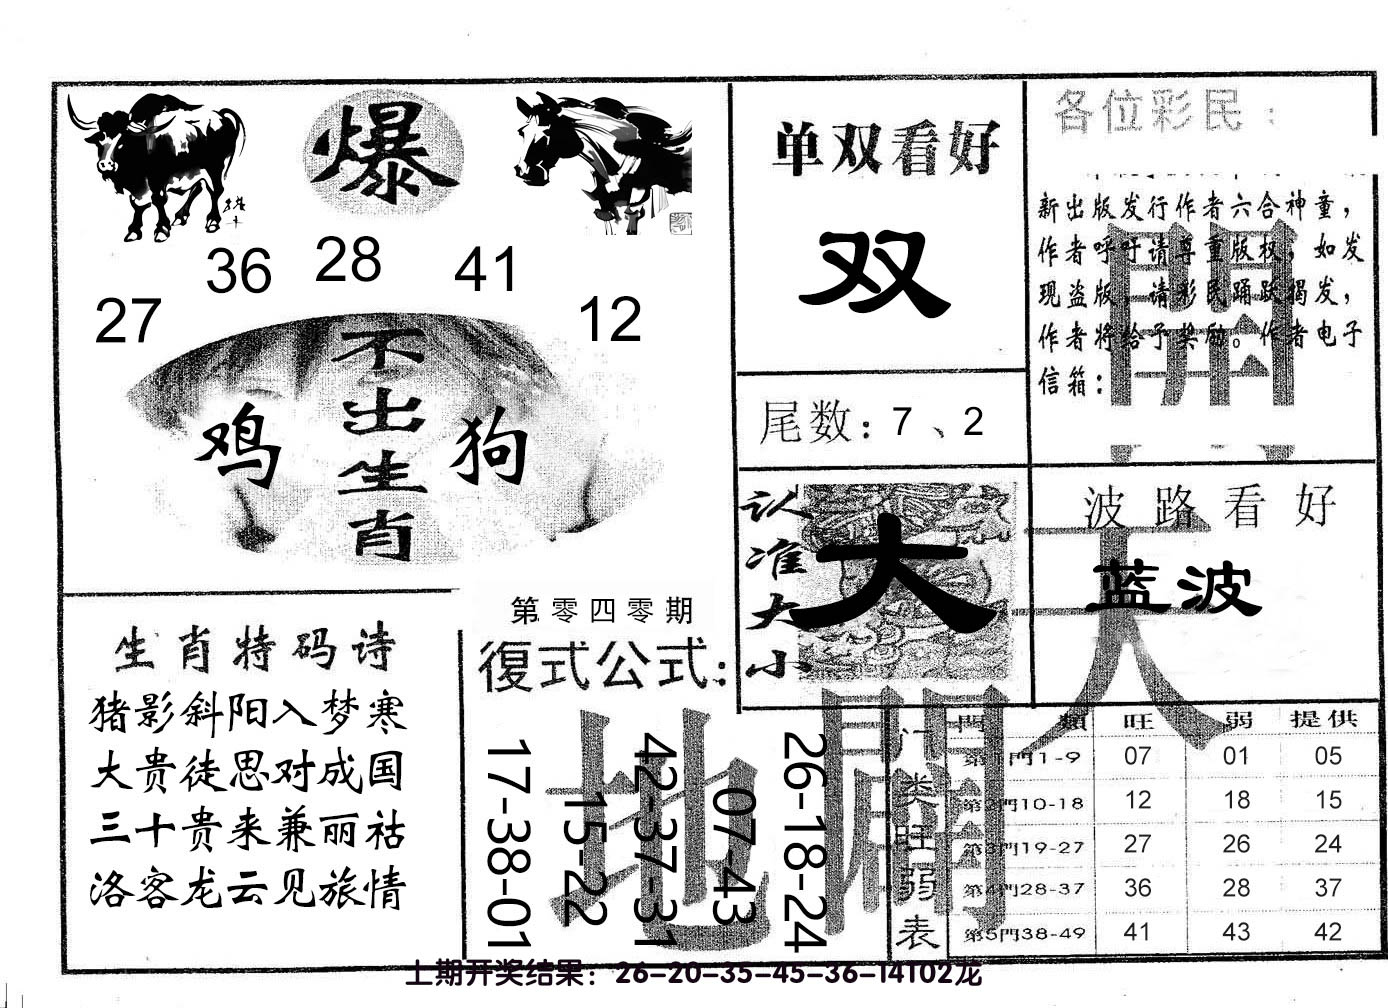 爆
36 28 41
27 12
不出生肖
鸡 狗
生肖特码诗
猪影斜阳入梦寒
大贵徒思对成国
三十贵来兼丽祜
洛客龙云见旅情
第零四零期
復式公式:
17-38-01
15-22
42-37-31
07-43
26-18-24
单双看好
双
尾数:7、2
认准大小
大
各位彩民:
新出版发行作者六合神童,
作者呼吁请尊重版权,如发
现盗版,请彩民踊跃揭发,
作者将给予奖励。作者电子
信箱:
波路看好
蓝波
天
開
地
開
门类旺弱表
門類 旺 弱 提供
第1門1-9 07 01 05
第2門10-18 12 18 15
第3門19-27 27 26 24
第4門28-37 36 28 37
第5門38-49 41 43 42
上期开奖结果：26-20-35-45-36-14T02龙